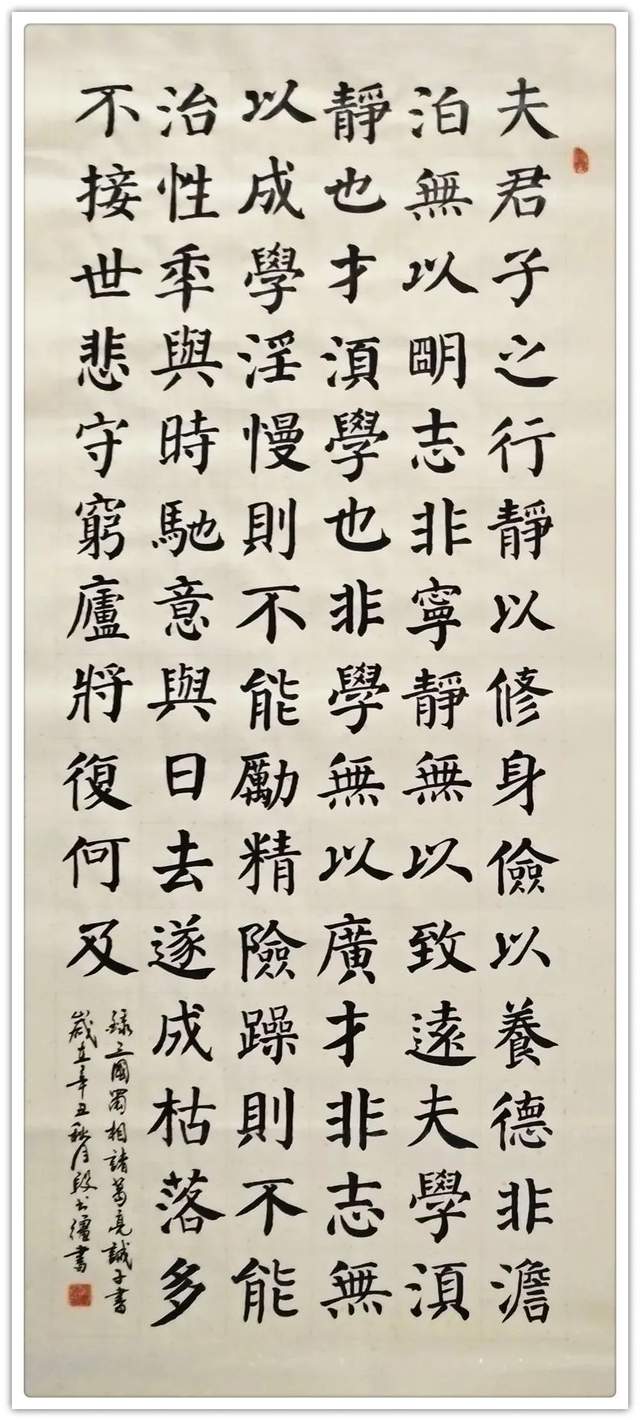 夫君子之行靜以修身儉以養德非澹
泊無以朙志非寧靜無以致遠夫學湏
靜也才湏學也非學無以廣才非志無
以成學淫慢則不能勵精險躁則不能
治性年與時馳意與日去遂成枯落多
不接世悲守窮廬將復何及
錄三國蜀相諸葛亮誡子書
歲在辛丑秋月段書